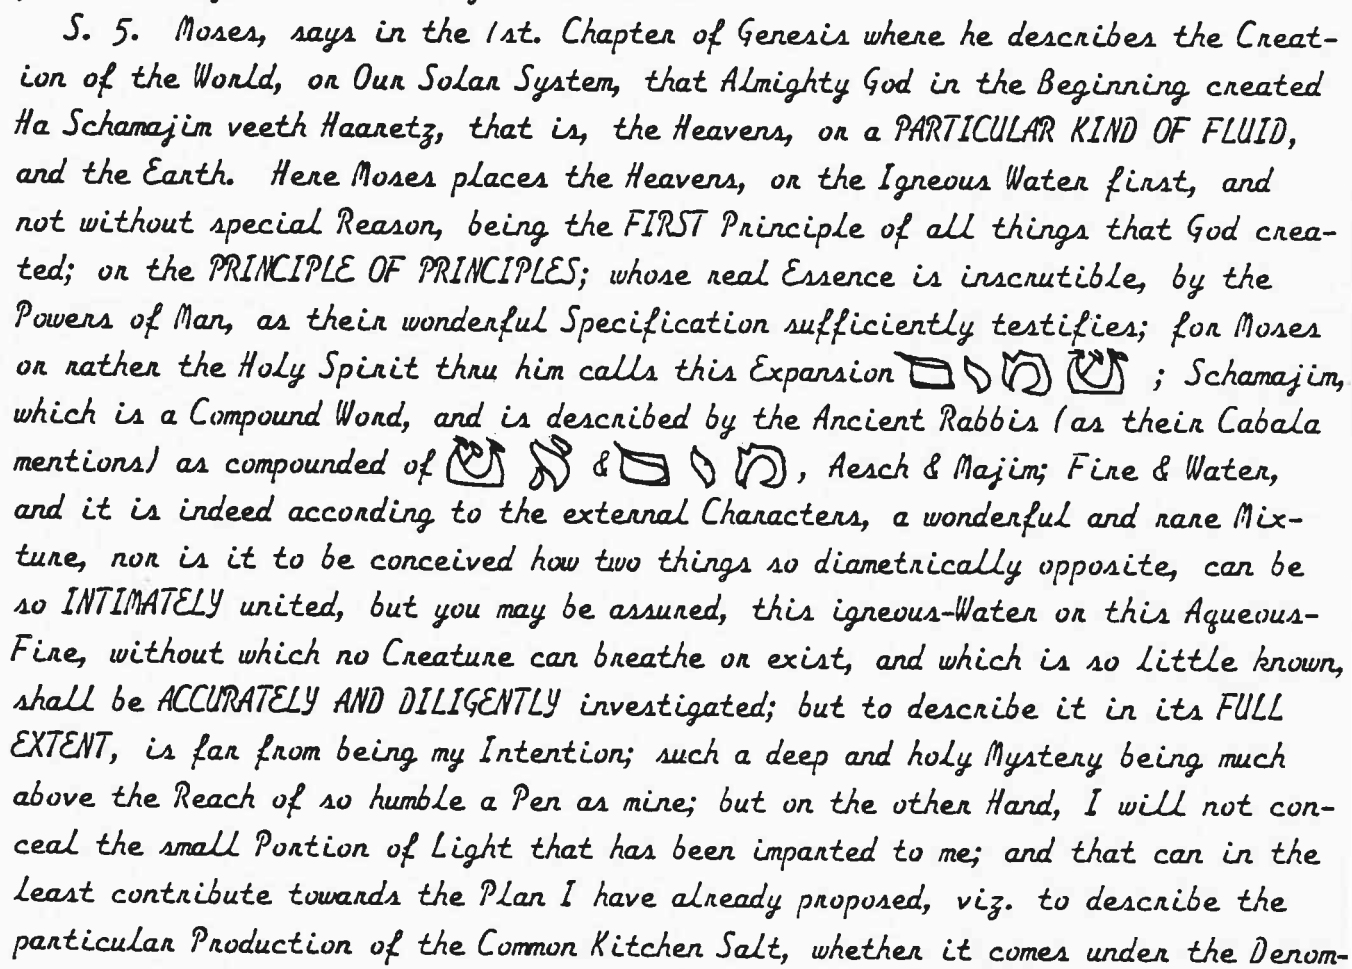 S. 5. Moses, says in the 1st. Chapter of Genesis where he describes the Creat-
ion of the World, or Our Solar System, that Almighty God in the Beginning created
Ha Schamajim veeth Haaretz, that is, the Heavens, or a PARTICULAR KIND OF FLUID,
and the Earth. Here Moses places the Heavens, or the Igneous Water first, and
not without special Reason, being the FIRST Principle of all things that God crea-
ted; or the PRINCIPLE OF PRINCIPLES; whose real Essence is inscrutible, by the
Powers of Man, as their wonderful Specification sufficiently testifies; for Moses
or rather the Holy Spirit thru him calls this Expansion שמים ; Schamajim,
which is a Compound Word, and is described by the Ancient Rabbis (as their Cabala
mentions) as compounded of אש & מים, Aesch & Majim; Fire & Water,
and it is indeed according to the external Characters, a wonderful and rare Mix-
ture, nor is it to be conceived how two things so diametrically opposite, can be
so INTIMATELY united, but you may be assured, this igneous-Water or this Aqueous-
Fire, without which no Creature can breathe or exist, and which is so little known,
shall be ACCURATELY AND DILIGENTLY investigated; but to describe it in its FULL
EXTENT, is far from being my Intention; such a deep and holy Mystery being much
above the Reach of so humble a Pen as mine; but on the other Hand, I will not con-
ceal the small Portion of Light that has been imparted to me; and that can in the
least contribute towards the Plan I have already proposed, viz. to describe the
particular Production of the Common Kitchen Salt, whether it comes under the Denom-